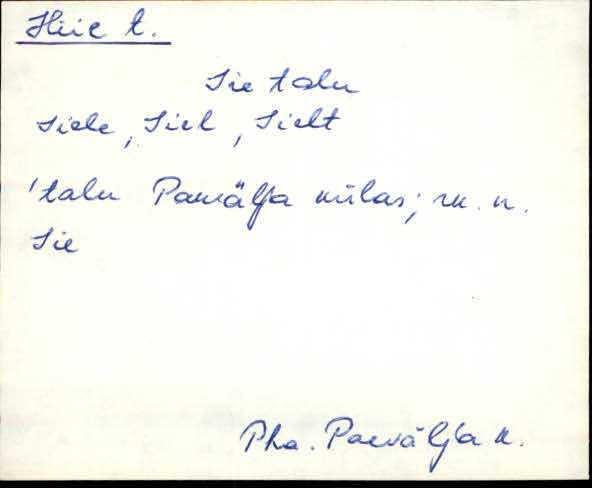 Hiie t.
Iie talu
Iiele, Iiel, Iielt
'talu Paevälja külas; rk. n.
Iie
Pha. Paevälja k.